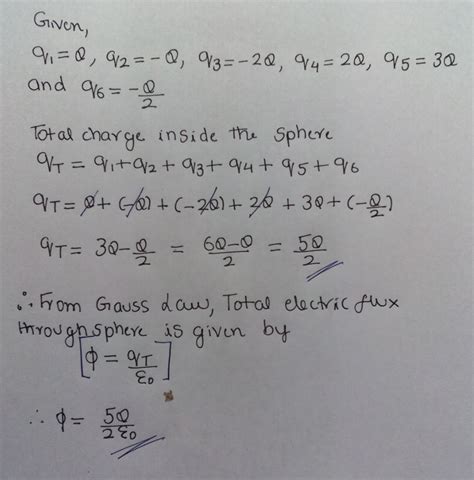 Given,
q₁=Q, q₂=-Q, q₃=-2Q, q₄=2Q, q₅=3Q
and q₆=-Q/2
Total charge inside the sphere
qT = q₁+q₂+q₃+q₄+q₅+q₆
qT = Q+(-Q)+(-2Q)+2Q+3Q+(-Q/2)
qT = 3Q-Q/2 = 6Q-Q/2 = 5Q/2
∴ From Gauss Law, Total electric flux
through sphere is given by
[ϕ = qT/ε0]
∴ ϕ = 5Q/2ε0